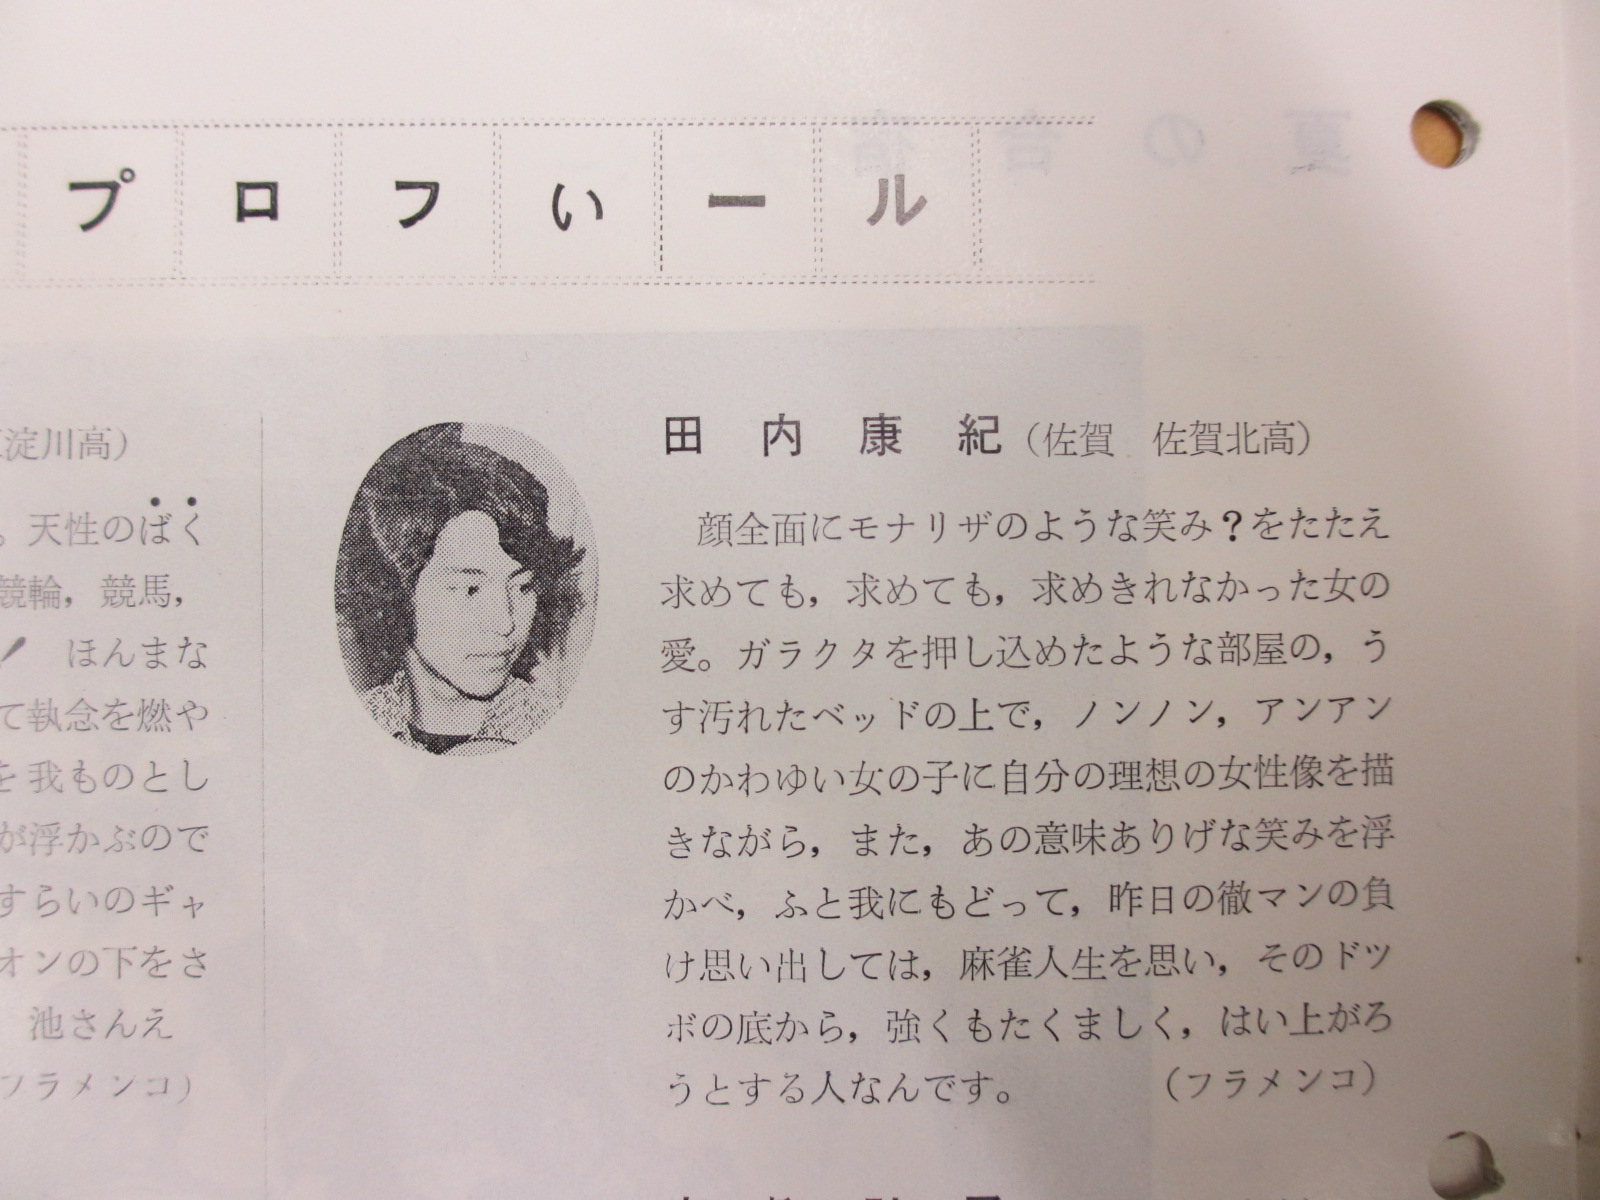 プロフいール
淀川高）
。天性のばく
競輪，競馬，
ほんまな
て執念を燃や
を我ものとし
が浮かぶので
すらいのギャ
オンの下をさ
池さんえ
フラメンコ）
田内康紀（佐賀　佐賀北高）
顔全面にモナリザのような笑み？をたたえ
求めても，求めても，求めきれなかった女の
愛。ガラクタを押し込めたような部屋の，う
す汚れたベッドの上で，ノンノン，アンアン
のかわゆい女の子に自分の理想の女性像を描
きながら，また，あの意味ありげな笑みを浮
かべ，ふと我にもどって，昨日の徹マンの負
け思い出しては，麻雀人生を思い，そのドツ
ボの底から，強くもたくましく，はい上がろ
うとする人なんです。　（フラメンコ）